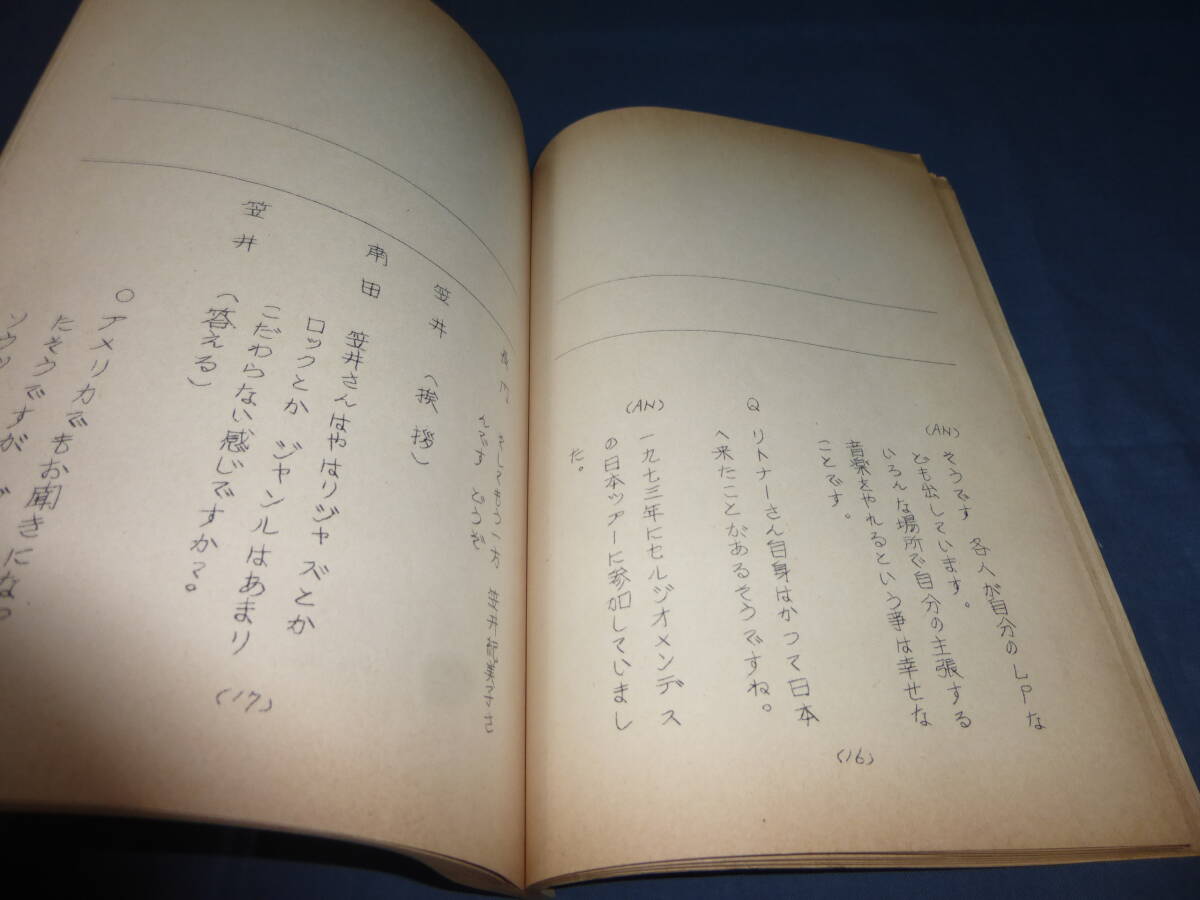 (AN) そうです 各人が自分のLPな
ども出しています。
いろんな場所で自分の主張する
音楽をやれるという事は幸せな
ことです。
Q リトナーさん自身はかつて日本
へ来たことがあるそうですね。
(AN) 一九七三年にセルジオメンデス
の日本ツアーに参加していまし
た。
(16)
そしてもう一方 笠井紀美子さ
んです どうぞ
笠井 (挨拶)
南田 笠井さんはやはりジャズとか
ロックとか ジャンルはあまり
こだわらない感じですか?。
笠井 (答える)
○アメリカでもお聞きになっ
たそうですが
(17)